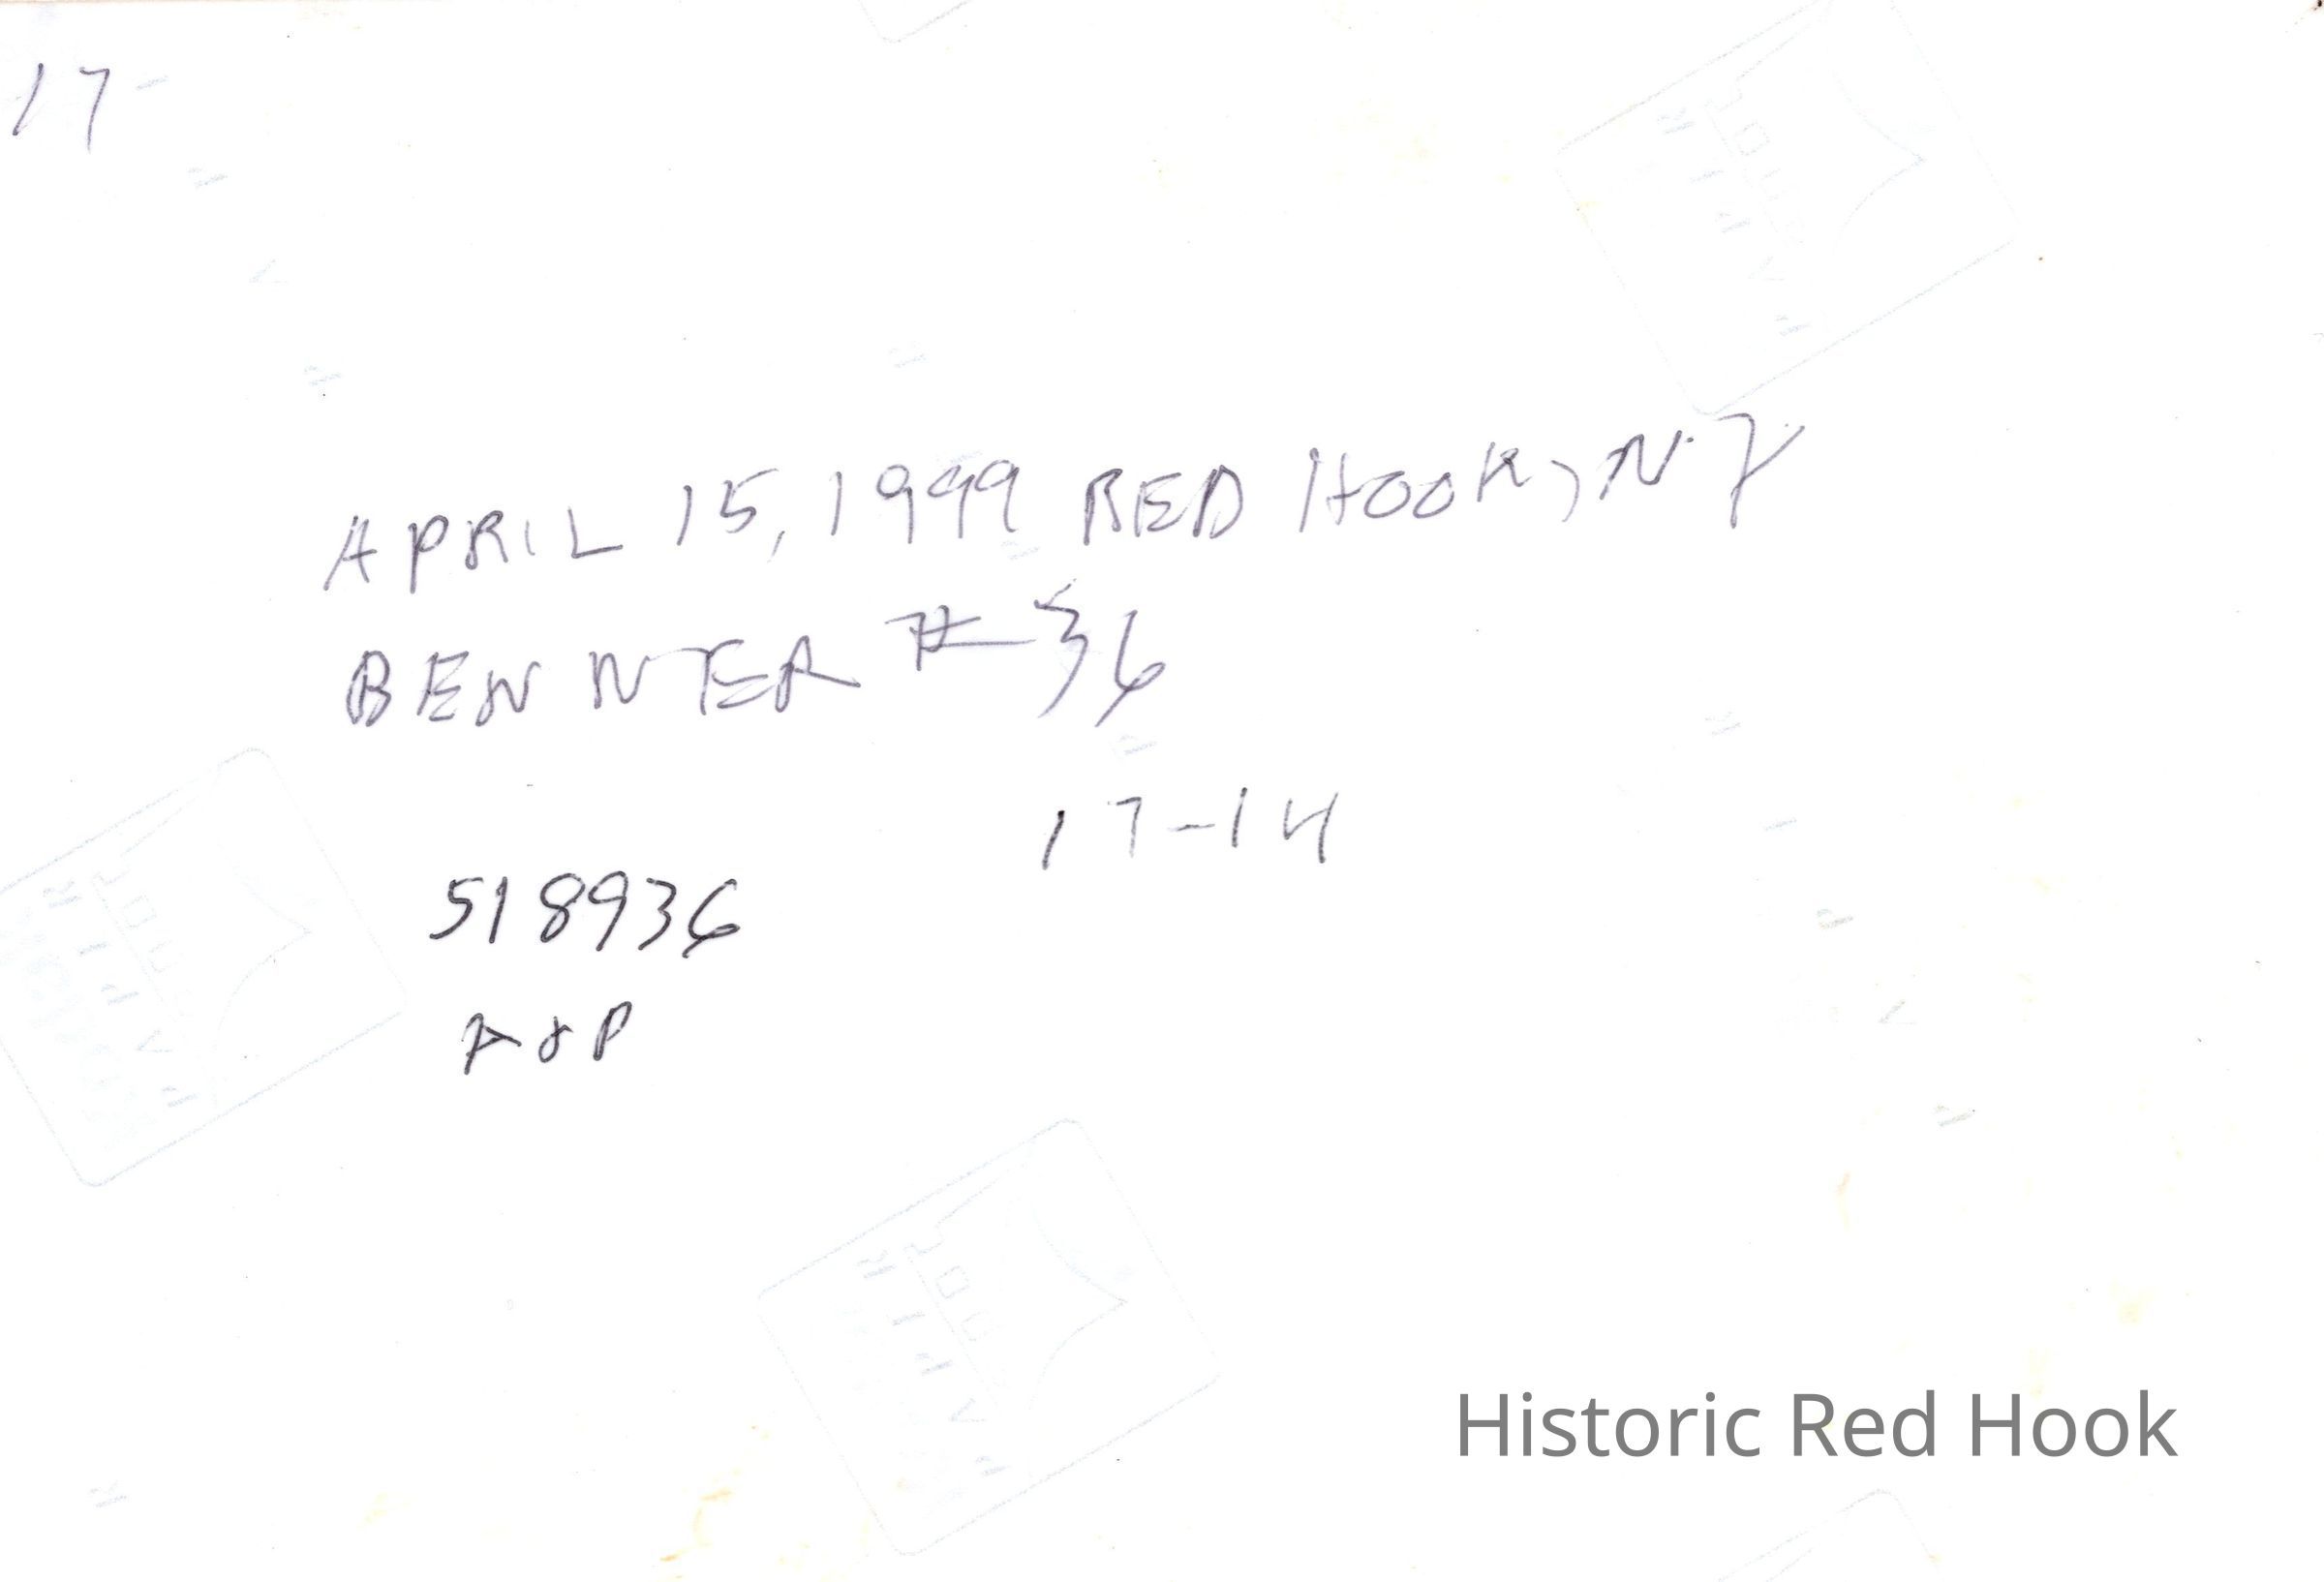 17-
APRIL 15, 1999 RED HOOK, N.Y
BENNTER # 36
17-14
518936
A&P
Historic Red Hook